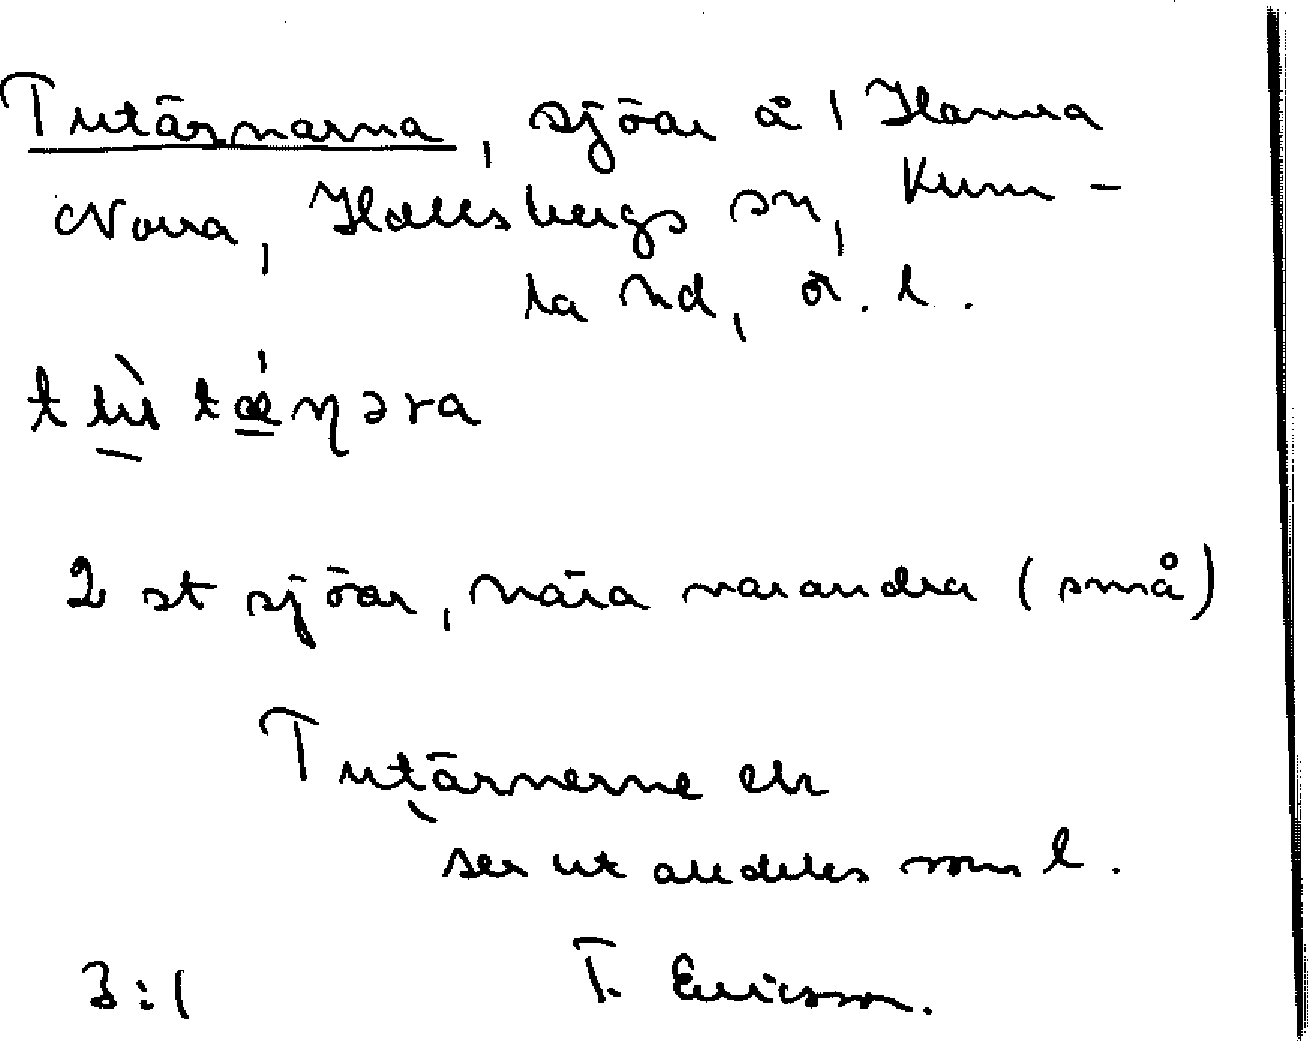 Tutärnarna, sjöar å 1 Hamra
Norra, Hallsbergs sn, Kum-
la hd, ö. l.
tu̠tæ̠ṇəra
2 st sjöar, nära varandra (små)
Tutärnerne ehr
ser ut alldeles som l.
3:1 T. Ericsson.